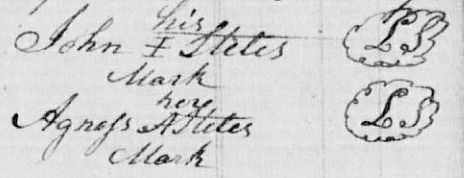 his
John I Stetes LS
Mark
her
Agness A Stetes LS
Mark